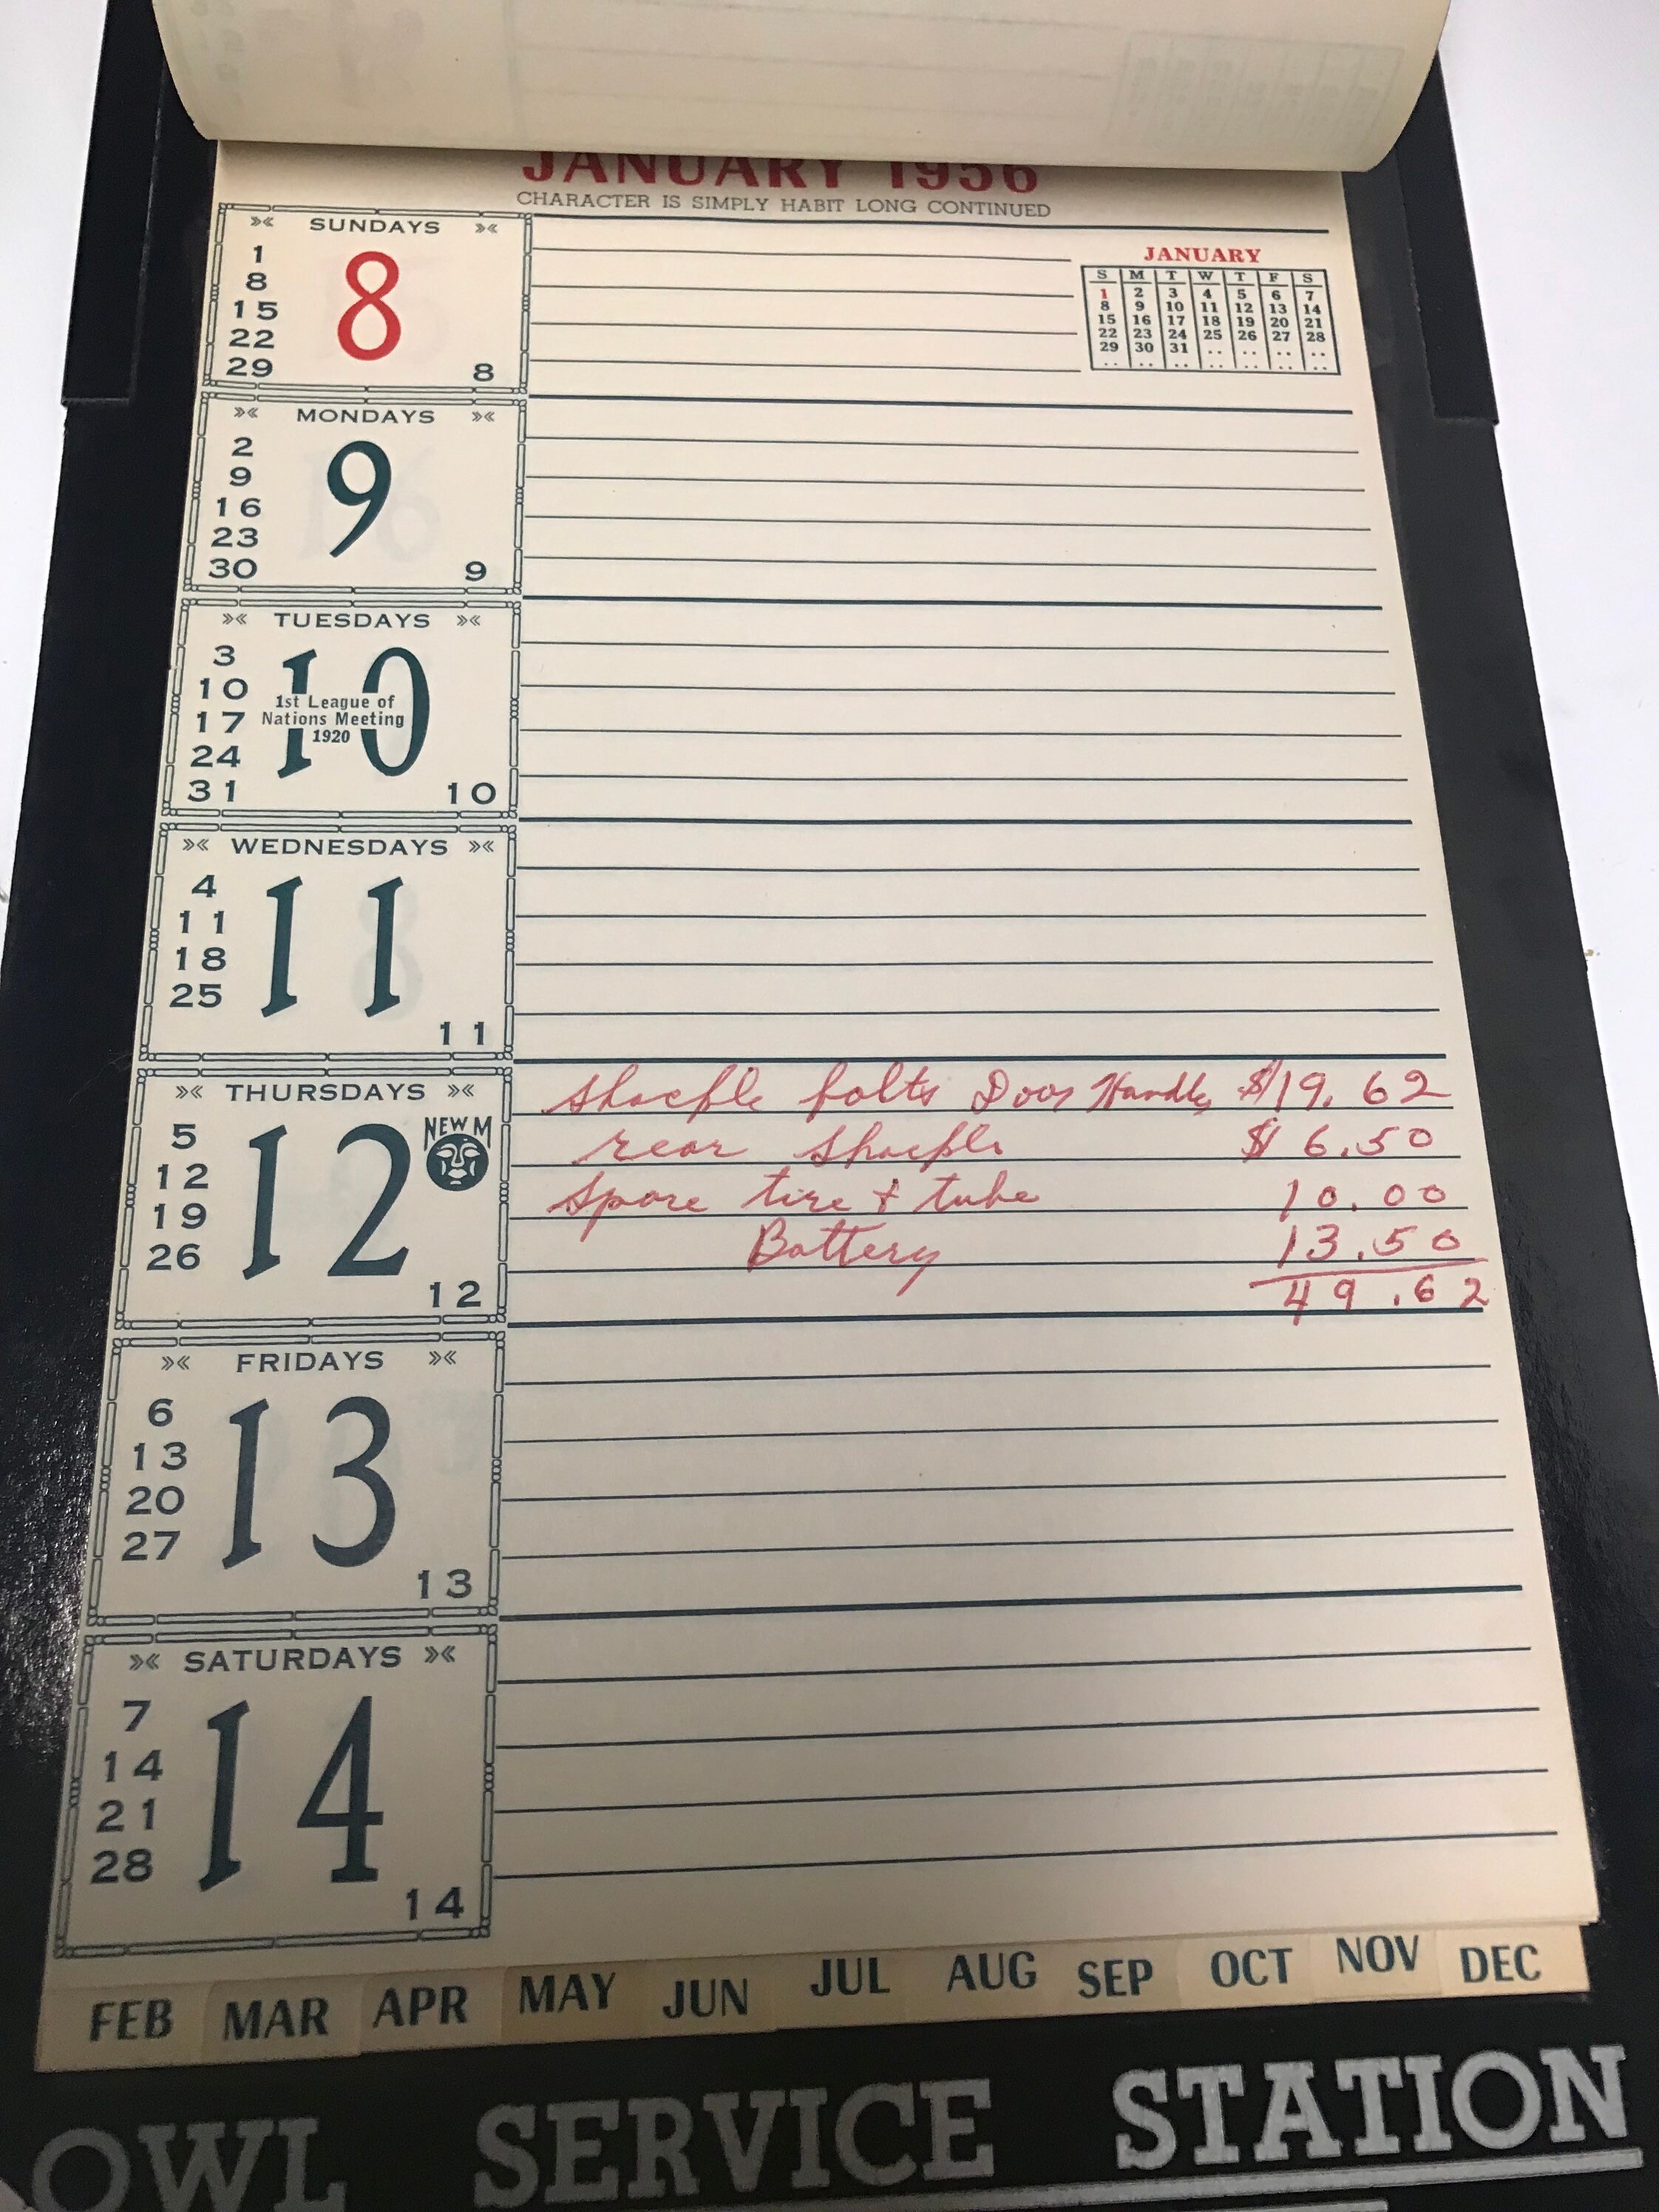 JANUARY 1956
CHARACTER IS SIMPLY HABIT LONG CONTINUED
SUNDAYS
1
8
15
22
29
8
8
JANUARY
S M T W T F S
1 2 3 4 5 6 7
8 9 10 11 12 13 14
15 16 17 18 19 20 21
22 23 24 25 26 27 28
29 30 31 .. .. .. ..
.. .. .. .. .. .. ..
MONDAYS
2
9
16
23
30
9
9
TUESDAYS
3
10
17
24
31
10
1st League of
Nations Meeting
1920
10
WEDNESDAYS
4
11
18
25
11
11
THURSDAYS
5
12
19
26
12
NEW M
12
Shackle bolts Door Handle $19.62
rear Shackle $6.50
Spare tire & tube 10.00
Battery 13.50
49.62
FRIDAYS
6
13
20
27
13
13
SATURDAYS
7
14
21
28
14
14
FEB MAR APR MAY JUN JUL AUG SEP OCT NOV DEC
OWL SERVICE STATION